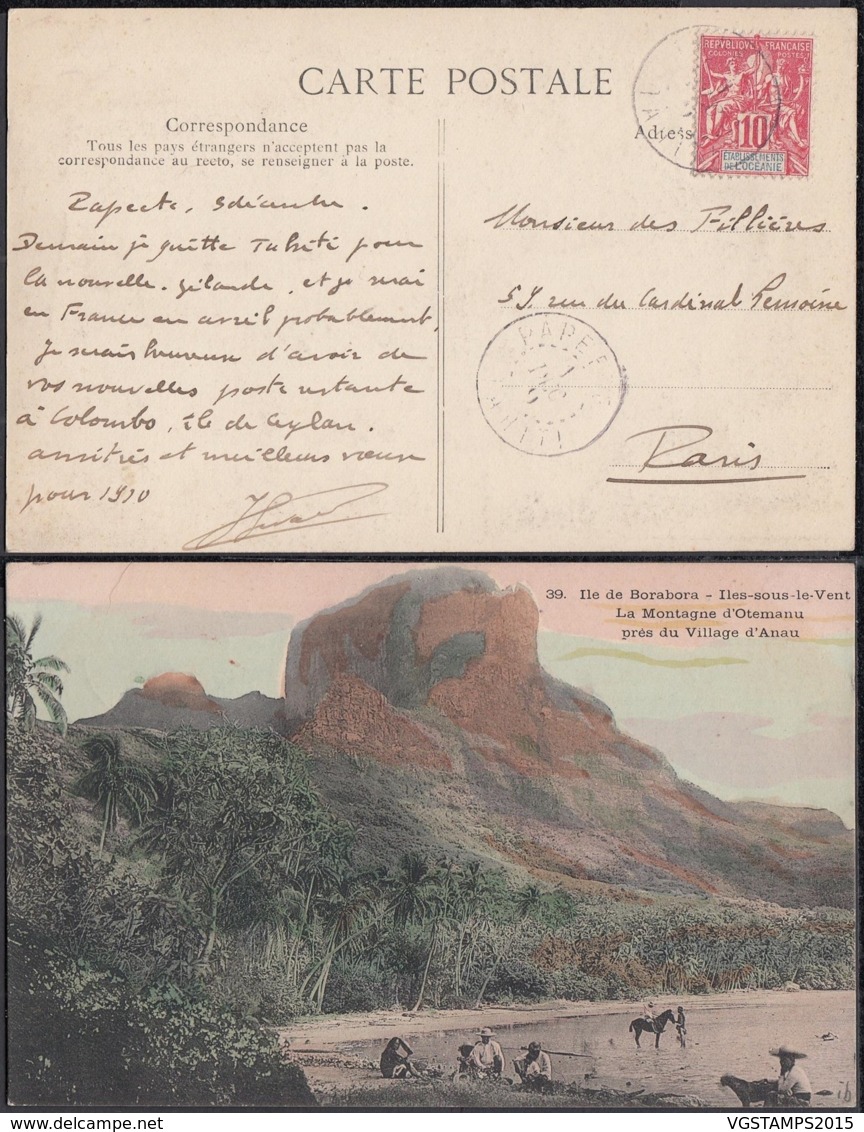 CARTE POSTALE
Correspondance
Tous les pays étrangers n'acceptent pas la
correspondance au recto, se renseigner à la poste.
Adresse
REPVBLIQVE FRANÇAISE
COLONIES POSTES
10
ETABLISSEMENTS
DE L'OCÉANIE
Papeete, décembre.
Demain je quitte Tahiti pour
la nouvelle-Zélande, et je serai
en France en avril probablement.
Je serais heureuse d'avoir de
vos nouvelles poste restante
à Colombo, île de Ceylan.
amitiés et meilleurs vœux
pour 1910
Monsieur des Fillières
59 rue du Cardinal Lemoine
Paris
PAPEETE
TAHITI
39. Ile de Borabora - Iles-sous-le-Vent
La Montagne d'Otemanu
près du Village d'Anau
VGSTAMPS2015